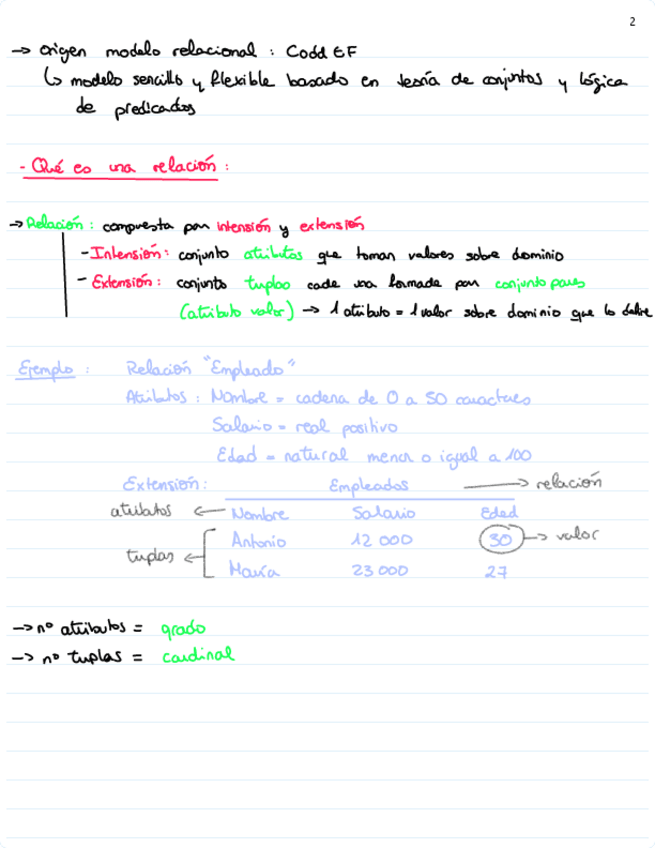 2
→ origen modelo relacional : Codd EF
↳ modelo sencillo y flexible basado en teoría de conjuntos y lógica
de predicados
- Qué es una relación :
→ Relación : compuesta por intensión y extensión
- Intensión : conjunto atributos que toman valores sobre dominio
- Extensión : conjunto tuplas cada una formada por conjunto pares
(atributo valor) → 1 atributo = 1 valor sobre dominio que lo define
Ejemplo : Relación "Empleado"
Atributos : Nombre = cadena de 0 a 50 caracteres
Salario = real positivo
Edad = natural menor o igual a 100
Extensión : Empleados → relación
atributos ← Nombre Salario Edad
Antonio 12 000 30 → valor
tuplas ←
María 23 000 27
→ nº atributos = grado
→ nº tuplas = cardinal